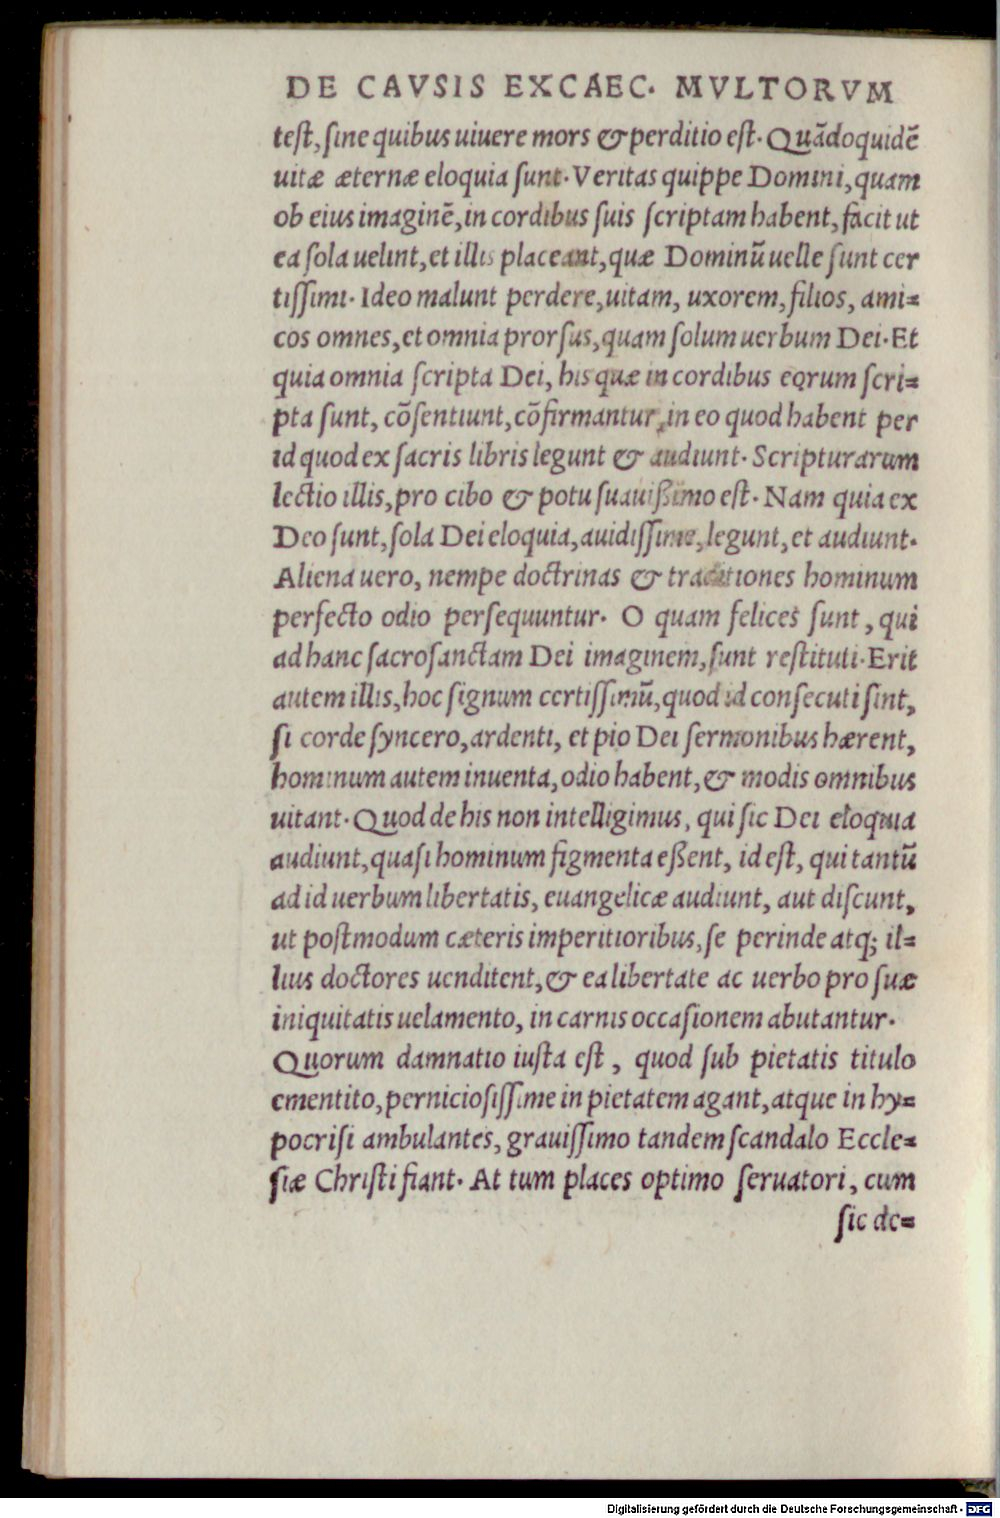 DE CAVSIS EXCAEC. MVLTORVM
test, sine quibus uiuere mors & perditio est. Quādoquidē
uitæ æternæ eloquia sunt. Veritas quippe Domini, quam
ob eius imaginē, in cordibus suis scriptam habent, facit ut
ea sola uelint, et illis placeant, quæ Dominū uelle sunt cer
tissimi. Ideo malunt perdere, uitam, uxorem, filios, ami=
cos omnes, et omnia prorsus, quam solum uerbum Dei. Et
quia omnia scripta Dei, his quæ in cordibus eorum scri=
pta sunt, cōsentiunt, cōfirmantur, in eo quod habent per
id quod ex sacris libris legunt & audiunt. Scripturarum
lectio illis, pro cibo & potu suauißimo est. Nam quia ex
Deo sunt, sola Dei eloquia, auidissime, legunt, et audiunt.
Aliena uero, nempe doctrinas & traditiones hominum
perfecto odio persequuntur. O quam felices sunt, qui
ad hanc sacrosanctam Dei imaginem, sunt restituti. Erit
autem illis, hoc signum certissimū, quod id consecuti sint,
si corde syncero, ardenti, et pio Dei sermonibus hærent,
hominum autem inuenta, odio habent, & modis omnibus
uitant. Quod de his non intelligimus, qui sic Dei eloquia
audiunt, quasi hominum figmenta eßent, id est, qui tantū
ad id uerbum libertatis, euangelicæ audiunt, aut discunt,
ut postmodum cæteris imperitioribus, se perinde atq; il=
lius doctores uenditent, & ea libertate ac uerbo pro suæ
iniquitatis uelamento, in carnis occasionem abutantur.
Quorum damnatio iusta est, quod sub pietatis titulo
ementito, perniciosissime in pietatem agant, atque in hy=
pocrisi ambulantes, grauissimo tandem scandalo Eccle=
siæ Christi fiant. At tum places optimo seruatori, cum
sic de=
Digitalisierung gefördert durch die Deutsche Forschungsgemeinschaft - DFG